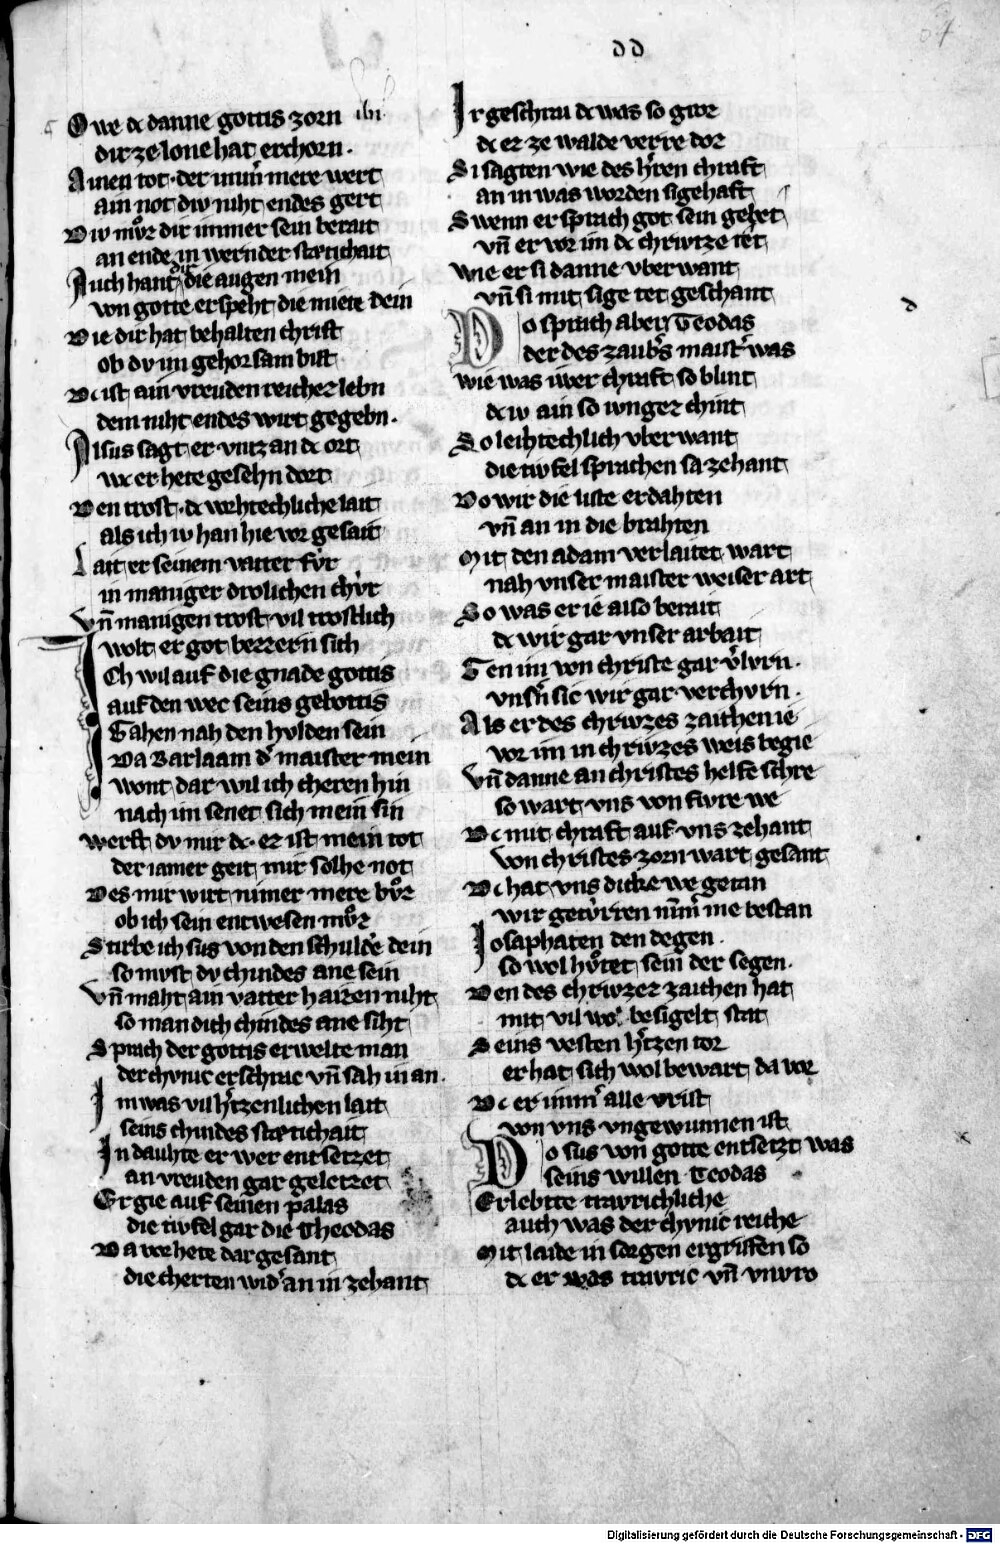 d d
Owe dc danne gottis zorn ibi
dir ze lone hat erchorn.
Ainen tot. der imm̃ mere wert
ain not div niht endes gert
Div mvͦz dir immer sein berait
an ende in wernder stætichait
Auch hant die augen mein
von gotte erspeht die miete dein
Die dir hat behalten christ
ob dv im gehorsam bist
Dc ist ain vreuden reichez lebn
dem niht endes wirt gegebn.
Alsus sagt er vntz an dc ort
wc er hete gesehn dort
Den trost. dc vorhtechliche lait
als ich iv han hie vor gesait
Lait er seinem vatter fvͤr
in maniger drolichen chvͤr
Vñ manigen trost vil trostlich
wolt er got bezzern sich
Ich wil auf die gnade gottis
auf den wec seins gebottis
Gahen nah den hvlden sein
Da Barlaam d' maister mein
wont dar wil ich cheren hin
nach im senet sich mein sin
Werst dv mir dc. ez ist mein tot
der iamer geit mir solhe not
Des mir wirt nimer mere bvͦz
ob ich sein entwesen mvͦz
Stirbe ich sus von den schulde dein
so mvst dv chindes ane sein
Vñ maht ain vatter haizen niht
so man dich chindes ane siht
Sprach der gottis erwelte man
der chvnic erschrac vñ sah in an.
Im was vil h'tzenlichen lait
seins chindes stætichait
In dauhte er wer entsetzet
an vreuden gar geletzet
Er gie auf seinen palas
die tivfel gar die Theodas
Da vor hete dar gesant
die cherten wid' an in zehant
Ir geschrai dc was so groz
dc er ze walde verre doz
Si sagten wie des h'ren chraft
an in was worden sigehaft
Swenn er sprach got sein gebet
vñ er vor im dc chrivtze tet
Wie er si danne vberwant
vñ si mit sige tet geschant
Do sprach aber Teodas
der des zaub's maist' was
Wie was iwer chraft so blint
dc iv ain so ivnger chint
So leihtechlich vberwant
die tivfel sprachen sa zehant
Do wir die liste erdahten
vñ an in die brahten
Mit den adam verlaitet wart
nah vnser maister weiser art
So was er ie also berait
dc wir gar vnser arbait
Gen im von christe gar v'lvrn.
vnsñ sic wir gar verchvrn.
Als er des chrivzes zaichen ie
vor im in chrivzes weis begie
Vñ danne an christes helfe schre
so wart vns von fivre we
Dc mit chraft auf vns zehant
von christes zorn wart gesant
Dc hat vns dicke we getan
wir getvͤrren nim̃ me bestan
Iosaphaten den degen.
so wol hvͤtet sein der segen.
Den des chrivzez zaichen hat
mit vil wol besigelt stat
Seins vesten h'tzen tor
er hat sich wol bewart da vor
Dc er imm' alle vrist
von vns vngewunnen ist
Do sus von gotte entsetzt was
seins willen Teodas
Er lebtte travrichliche
auch was der chvnic reiche
Mit laide in sorgen ergriffen so
dc er was travric vñ vnvro
Digitalisierung gefördert durch die Deutsche Forschungsgemeinschaft - DFG